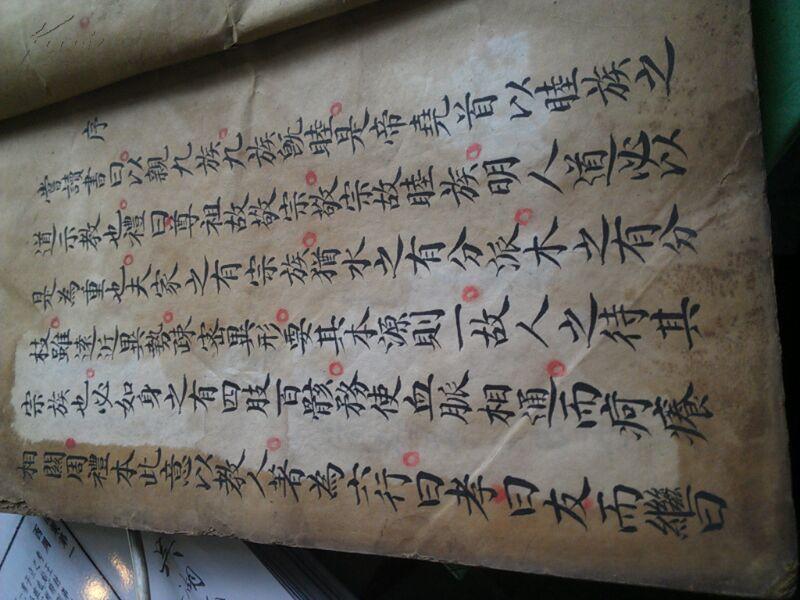 序
嘗讀書曰以親九族九族既睦是帝堯首以睦族之
道示教也禮曰尊祖故敬宗敬宗故睦族明人道必以
是為重也夫家之有宗族猶水之有分派木之有分
枝雖遠近異勢疎密異形要其本源則一故人之待其
宗族也必如身之有四肢百骸務使血脈相通而疴癢
相關周禮本此意以教人著為六行曰孝曰友而繼曰